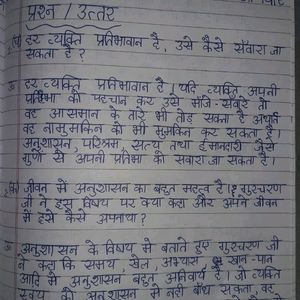 प्रश्न / उत्तर
हर व्यक्ति प्रतिभावान है, उसे कैसे सँवारा जा
सकता है ?
हर व्यक्ति प्रतिभावान है। यदि व्यक्ति अपनी
प्रतिभा को पहचान कर उसे मांजे-सँवारे तो
वह आसमान के तारे भी तोड़ सकता है अर्थात
वह नामुमकिन को भी मुमकिन कर सकता है।
अनुशासन, परिश्रम, सत्य तथा ईमानदारी जैसे
गुणों से अपनी प्रतिभा को सवारा जा सकता है।
जीवन में अनुशासन का बहुत महत्व है। गुरचरण
जी ने इस विषय पर क्या कहा और अपने जीवन
में इसे कैसे अपनाया ?
अनुशासन के विषय में बताते हुए गुरचरण जी
ने कहा कि समय, खेल, अभ्यास, खान-पान
आदि में अनुशासन बहुत अनिवार्य है। जो व्यक्ति
स्वयं को अनुशासन में नही बाँध सकता, वह